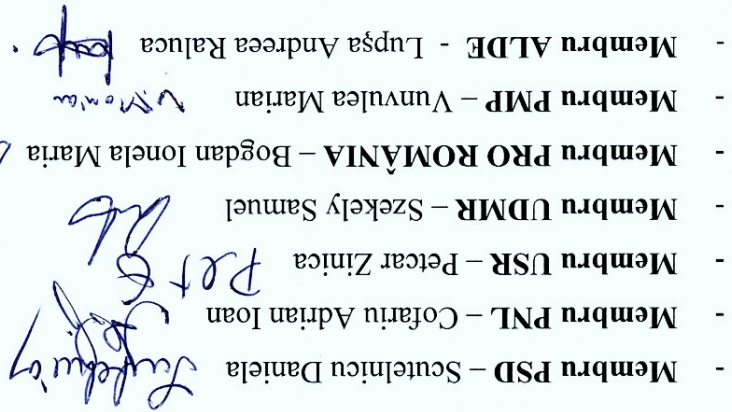 - Membru PSD – Scutelnicu Daniela
- Membru PNL – Cofariu Adrian Ioan
- Membru USR – Petcar Zinica
- Membru UDMR – Szekely Samuel
- Membru PRO ROMÂNIA – Bogdan Ionela Maria
- Membru PMP – Vunvulea Marian
- Membru ALDE - Lupşa Andreea Raluca